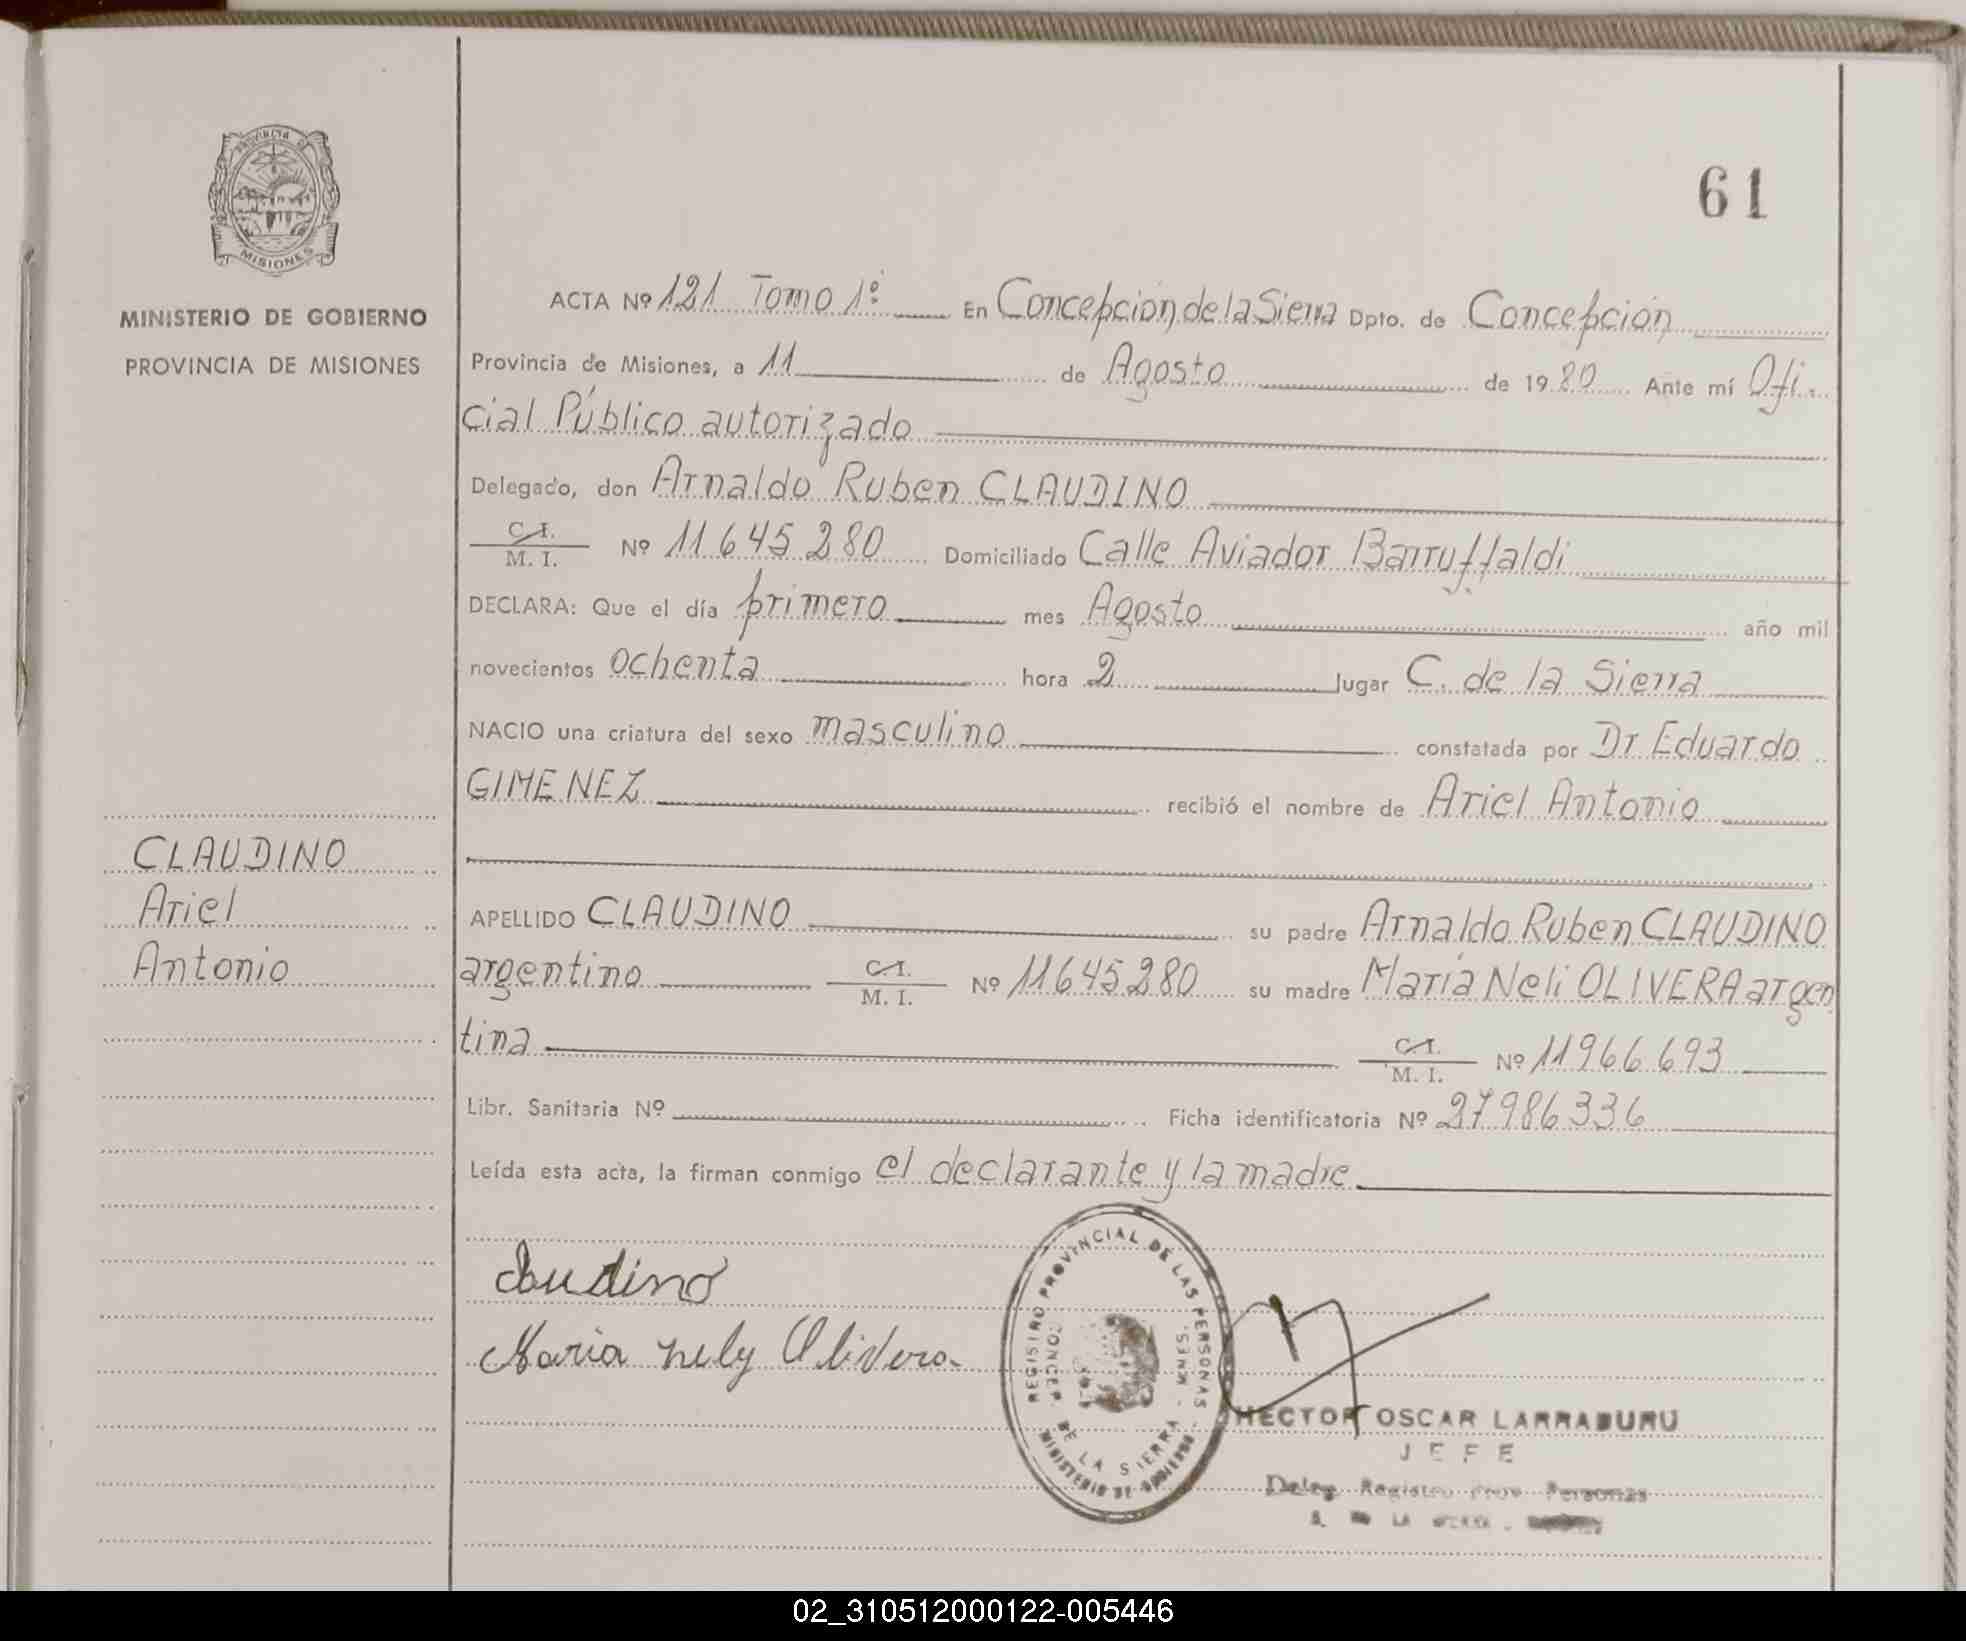 PROVINCIA D
MISIONES
MINISTERIO DE GOBIERNO
PROVINCIA DE MISIONES
CLAUDINO
Ariel
Antonio
61
ACTA Nº 121 Tomo 1º En Concepción de la Sierra Dpto. de Concepción
Provincia de Misiones, a 11 de Agosto de 1980 Ante mí Ofi-
cial Público autorizado
Delegado, don Arnaldo Ruben CLAUDINO
C.I.
M. I. Nº 11.645.280 Domiciliado Calle Aviador Barruffaldi
DECLARA: Que el día primero mes Agosto año mil
novecientos ochenta hora 2 lugar C. de la Sierra
NACIO una criatura del sexo masculino constatada por Dr Eduardo
GIMENEZ recibió el nombre de Ariel Antonio
APELLIDO CLAUDINO su padre Arnaldo Ruben CLAUDINO
argentino C.I.
M. I. Nº 11645280 su madre María Neli OLIVERA argen
tina C.I.
M. I. Nº 11966693
Libr. Sanitaria Nº Ficha identificatoria Nº 27986336
Leída esta acta, la firman conmigo el declarante y la madre.
Claudino
Maria nely Olivera
REGISTRO PROVINCIAL DE LAS PERSONAS
MINISTERIO DE GOBIERNO
CONCEP. DE LA SIERRA - MNES.
HECTOR OSCAR LARRABURU
JEFE
Deleg. Registro Prov. Personas
LA
02_310512000122-005446